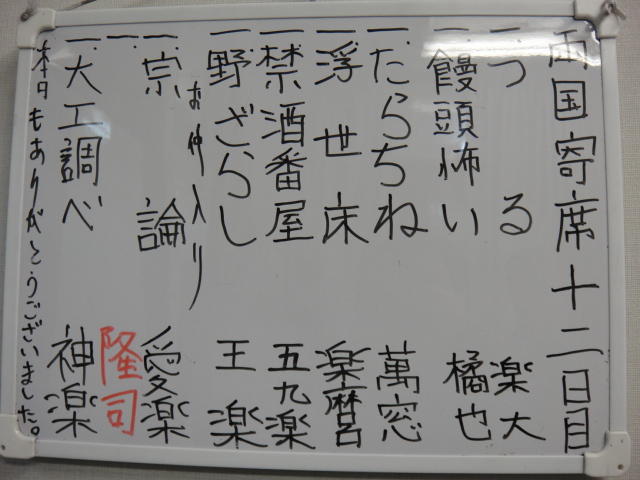 両国寄席十二日目
一.つる 楽大
一.饅頭怖い 橘也
一.たらちね 萬窓
一.浮世床 楽麿
一.禁酒番屋 五九楽
一.野ざらし 王楽
お仲入り
一.宗論 愛楽
一. 隆司
一.大工調べ 神楽
本日もありがとうございました。